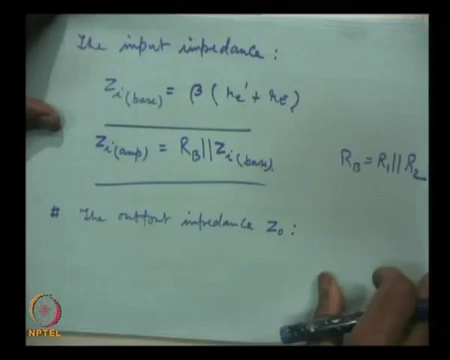 The input impedance :
Zi(base) = β ( re' + rE )
Zi(amp) = RB || Zi(base).
RB = R1 || R2
# The output impedance Zo :
NPTEL